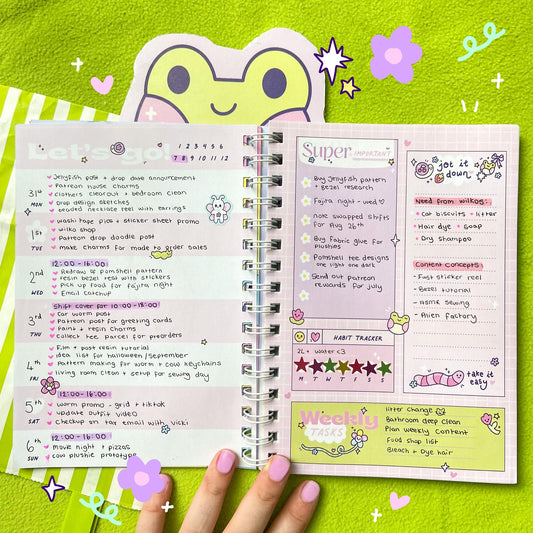 Let's go!
1 2 3 4 5 6
7 8 9 10 11 12
31st
MON
Jellyfish post + drop date announcement
Patreon house charms
clothers clearout + bedroom clean
Drop design sketches
beaded necklace reel with earrings
1st
TUE
washi tape pics + sticker sheet promo
wilko shop
Patreon drop doodle post
make charms for made to order sales
2nd
WED
12:00 - 16:00
Redraw of pomshell pattern
resin bezel test with stickers
Pick up food for fajita night
Email catchup
3rd
THU
Shift cover for 10:00 - 18:00
Car worm post
Patreon post for greeting cards
Paint + resin charms
Collect tee parcel for preorders
4th
FRI
Film + post resin tutorial
idea list for halloween/september
Pattern making for worm + cow keychains
living room clean + setup for sewing day
5th
SAT
12:00 - 16:00
worm promo - grid + tiktok
update outfit video
Checkup on tax email with Vicki
6th
SUN
12:00 - 16:00
movie night + pizzas
cow plushie prototype
Super IMPORTANT
Buy Jellyfish pattern
+ bezel research
Fajita night - wed ♡
note swapped shifts
for Aug 26th
Buy fabric glue for
plushies
Pomshell tee designs
one light one dark
Send out patreon
rewards for july
HABIT TRACKER
2L+ water <3
M T W T F S S
jot it
down
Need from wilkos:
Cat biscuits + litter
Hair dye + soap
Dry shampoo
Content concepts:
- Fast sticker reel
- Bezel tutorial
- ASMR sewing
- Alien factory
take it
easy
Weekly
TASKS
litter change
Bathroom deep clean
Plan weekly content
Food shop list
Bleach + Dye hair